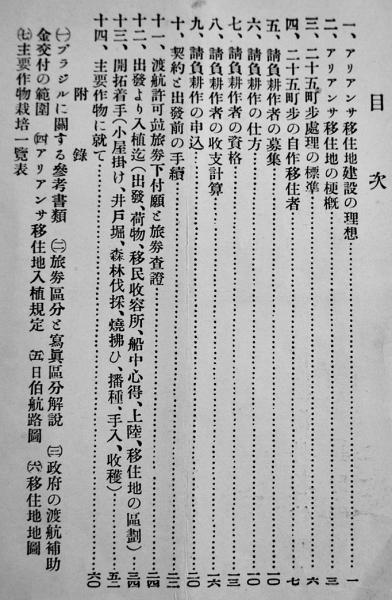 目次
一、アリアンサ移住地建設の理想……一
二、アリアンサ移住地の梗概……三
三、二十五町歩處理の標準……六
四、二十五町歩の自作移住者……七
五、請負耕作者の募集……一〇
六、請負耕作の仕方……一〇
七、請負耕作者の資格……一三
八、請負耕作者の收支計算……一六
九、請負耕作の申込……二〇
十、契約と出發前の手續……二二
十一、渡航許可竝旅券下付願と旅券査證……二四
十二、出發より入植迄(出發、荷物、移民收容所、船中心得、上陸、移住地の區劃)……三四
十三、開拓着手(小屋掛け、井戸堀、森林伐採、燒拂ひ、播種、手入、收穫)……五二
十四、主要作物に就て……六〇
附錄
㈠ブラジルに關する參考書類 ㈡旅券區分と寫眞區分解說 ㈢政府の渡航補助
金交付の範圍 ㈣アリアンサ移住地入植規定 ㈤日伯航路圖 ㈥移住地地圖
㈦主要作物栽培一覽表